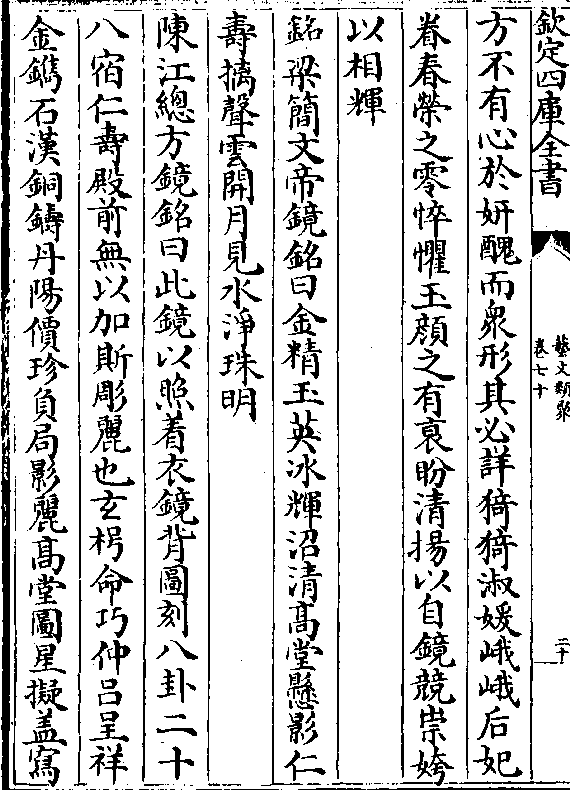 欽定四庫全書
藝文類聚
卷七十
二十
方不有心於妍醜而衆形其必詳猗猗淑媛峨峨后妃
眷春榮之零悴懼玉顔之有衰盼清揚以自鏡競崇姱
以相輝
銘梁簡文帝鏡銘曰金精玉英冰輝沼清髙堂懸影仁
壽摛聲雲開月見水淨珠明
陳江總方鏡銘曰此鏡以照着衣鏡背圖刻八卦二十
八宿仁壽殿前無以加斯彫麗也玄枵命巧仲呂呈祥
金鐫石漢銅鑄丹陽價珍負局影麗髙堂圖星擬盖寫